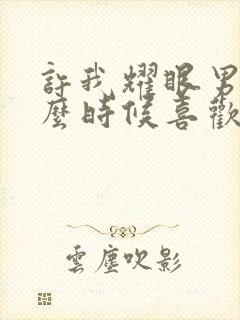 許我耀眼男
麼時候喜歡
雲塵吹影